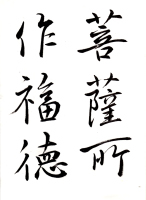 菩薩所
作福德